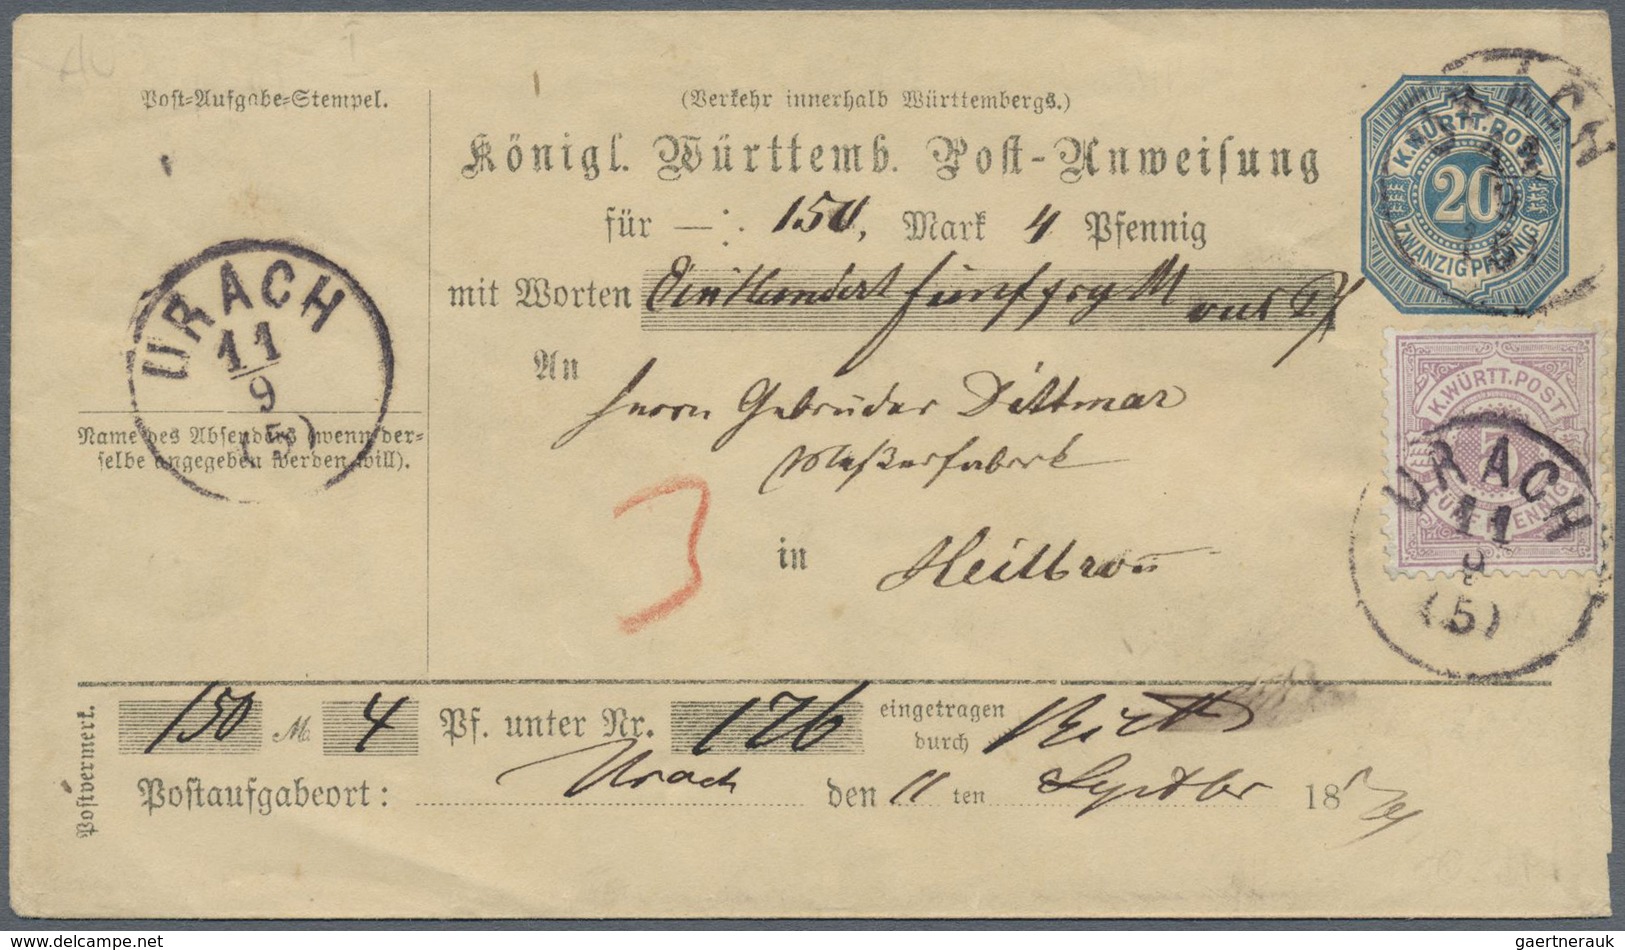 Post-Aufgabe-Stempel.
(Verkehr innerhalb Württembergs.)
Königl. Württemb. Post-Anweisung
für —: 150, Mark 4 Pfennig
mit Worten Ein Hundert fünfzig M
An
Herrn Gebrüder Dittmar
Messerfabrik
in Heilbronn
K. WÜRTT. POST
20
ZWANZIG PFENNIG
K. WÜRTT. POST
5
FÜNF PFENNIG
URACH
11
9
(5)
URACH
11
9
(5)
Name des Absenders (wenn der-
selbe angegeben werden will).
3
Postvermerk.
150 M. 4 Pf. unter Nr. 126 eingetragen
durch
Postaufgabeort: Urach den 11 ten Septbr 18
delcampe.net
gaertnerauk